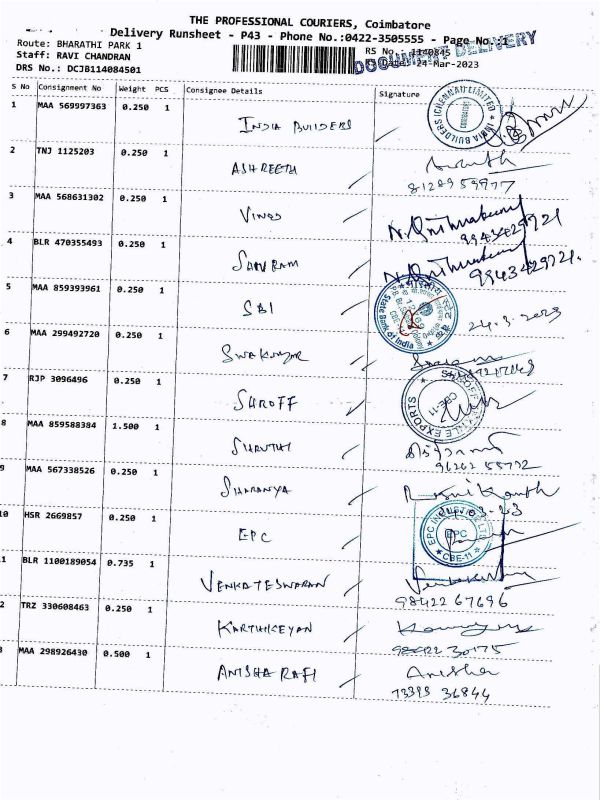 THE PROFESSIONAL COURIERS, Coimbatore
Delivery Runsheet - P43 - Phone No.:0422-3505555 - Page No.:1
DOCUMENT DELIVERY
Route: BHARATHI PARK 1
RS No : 1140845
Staff: RAVI CHANDRAN
Date: 24-Mar-2023
DRS No.: DCJB114084501
S No Consignment No Weight PCS Consignee Details Signature
1 MAA 569997363 0.250 1 INDIA BUILDERS
INDIA BUILDERS (CHENNAI) LIMITED
2 TNJ 1125203 0.250 1 ASHREETH
8128959777
3 MAA 568631302 0.250 1 VINOD
9943429721
4 BLR 470355493 0.250 1 SAIRAM
9943429721.
5 MAA 859393961 0.250 1 SBI
State Bank of India
24.3.2023
6 MAA 299492720 0.250 1 SIVAKUMAR
7 RJP 3096496 0.250 1 SHROFF
SHROFF TEXTILE EXPORTS
CBE-11
8 MAA 859588384 1.500 1 SHRUTHI
9 MAA 567338526 0.250 1 SHARANYA
10 HSR 2669857 0.250 1 EPC
EPC
CBE-11
1 BLR 1100189054 0.735 1 VENKATESWARAN
98422 67696
2 TRZ 330608463 0.250 1 KARTHIKEYAN
98422 30175
3 MAA 298926430 0.500 1 ANISHA RAFI
Anisha
73393 36844